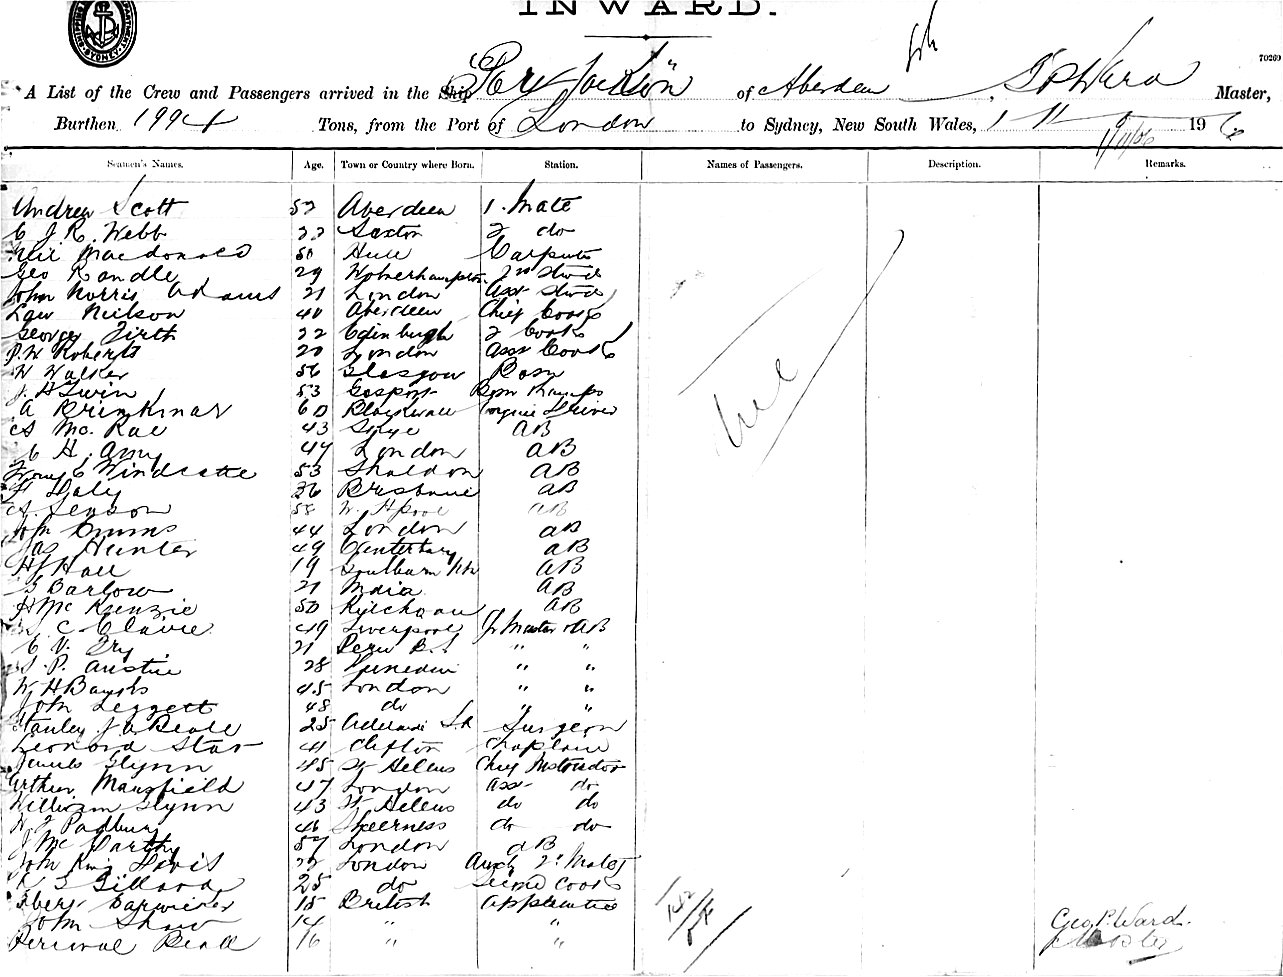 INWARD.
SYDNEY
70269
A List of the Crew and Passengers arrived in the Ship "Port Jackson" of Aberdeen, Master,
Burthen 1994 Tons, from the Port of London to Sydney, New South Wales, 1 11 1906
1/11/06
Seamen's Names. Age. Town or Country where Born. Station. Names of Passengers. Description. Remarks.
Andrew Scott 52 Aberdeen 1. Mate
C J. R. Webb 22 Saxton 2 do
Neil Macdonald 50 Hull Carpenter
Geo Randle 29 Wolverhampton
John Norris Adams 21 London Asst Stwd
Law Neilson 40 Aberdeen Chief Cook
George Firth 22 Edinburgh 2 Cook
P. W Roberts 20 London Asst Cook
W Walker 56 Glasgow Bosn
J. H Swin 53 Gosport Bosn
A Brinkman 60 Blackwall Engine Driver
Mc. Rae 43 Skye AB
C H. Amy 47 London AB
C Windeatte 53 Shaldon AB
F Daly 36 Brisbane AB
58 W. Hpool AB
John Emms 44 London AB
Jas Hunter 49 Canterbury AB
H J Hall 19 AB
G Barlow 21 India AB
H Mc Kenzie 50 AB
C Claire 49 Liverpool Qr Master & AB
C V. Fry 21 Peru " "
P. Austin 28 Dunedin " "
W H Banks 45 London " "
John Leggett 48 do " "
Stanley J. A Beale 25 Adelaide S.A Surgeon
Leonard Star 41 Clifton Chaplain
James Glynn 45 St Helens Chief Instructor
Arthur Mansfield 47 London Asst do
William Glynn 43 St Helens do do
W J Padbury 46 Sheerness do do
J Mc Carthy 57 London AB
John King Davis 22 London 2d Mate
Gillard 25 do Second Cook
15 British Apprentice
John Shaw 14 " "
Percival Beall 16 " "
Geo. P. Ward.
Master